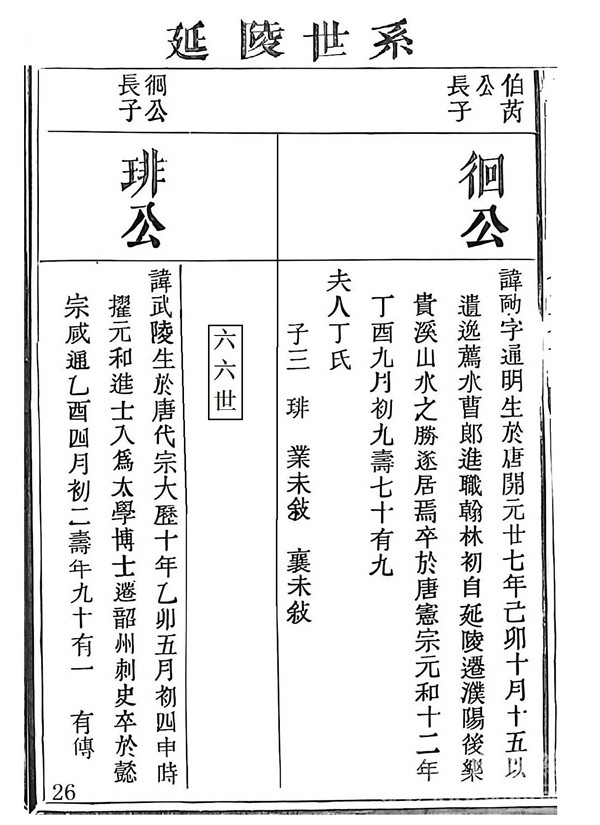 延陵世系
伯芮
公
長子
徊公
諱字通明生於唐開元廿七年己卯十月十五以
遺逸薦水曹郎進職翰林初自延陵遷濮陽後樂
貴溪山水之勝遂居焉卒於唐憲宗元和十二年
丁酉九月初九壽七十有九
夫人丁氏
子三 琲 業未敍 襄未敍
徊公
長子
琲公
六六世
諱武陵生於唐代宗大歷十年乙卯五月初四申時
擢元和進士入爲太學博士遷韶州刺史卒於懿
宗咸通乙酉四月初二壽年九十有一 有傳
26